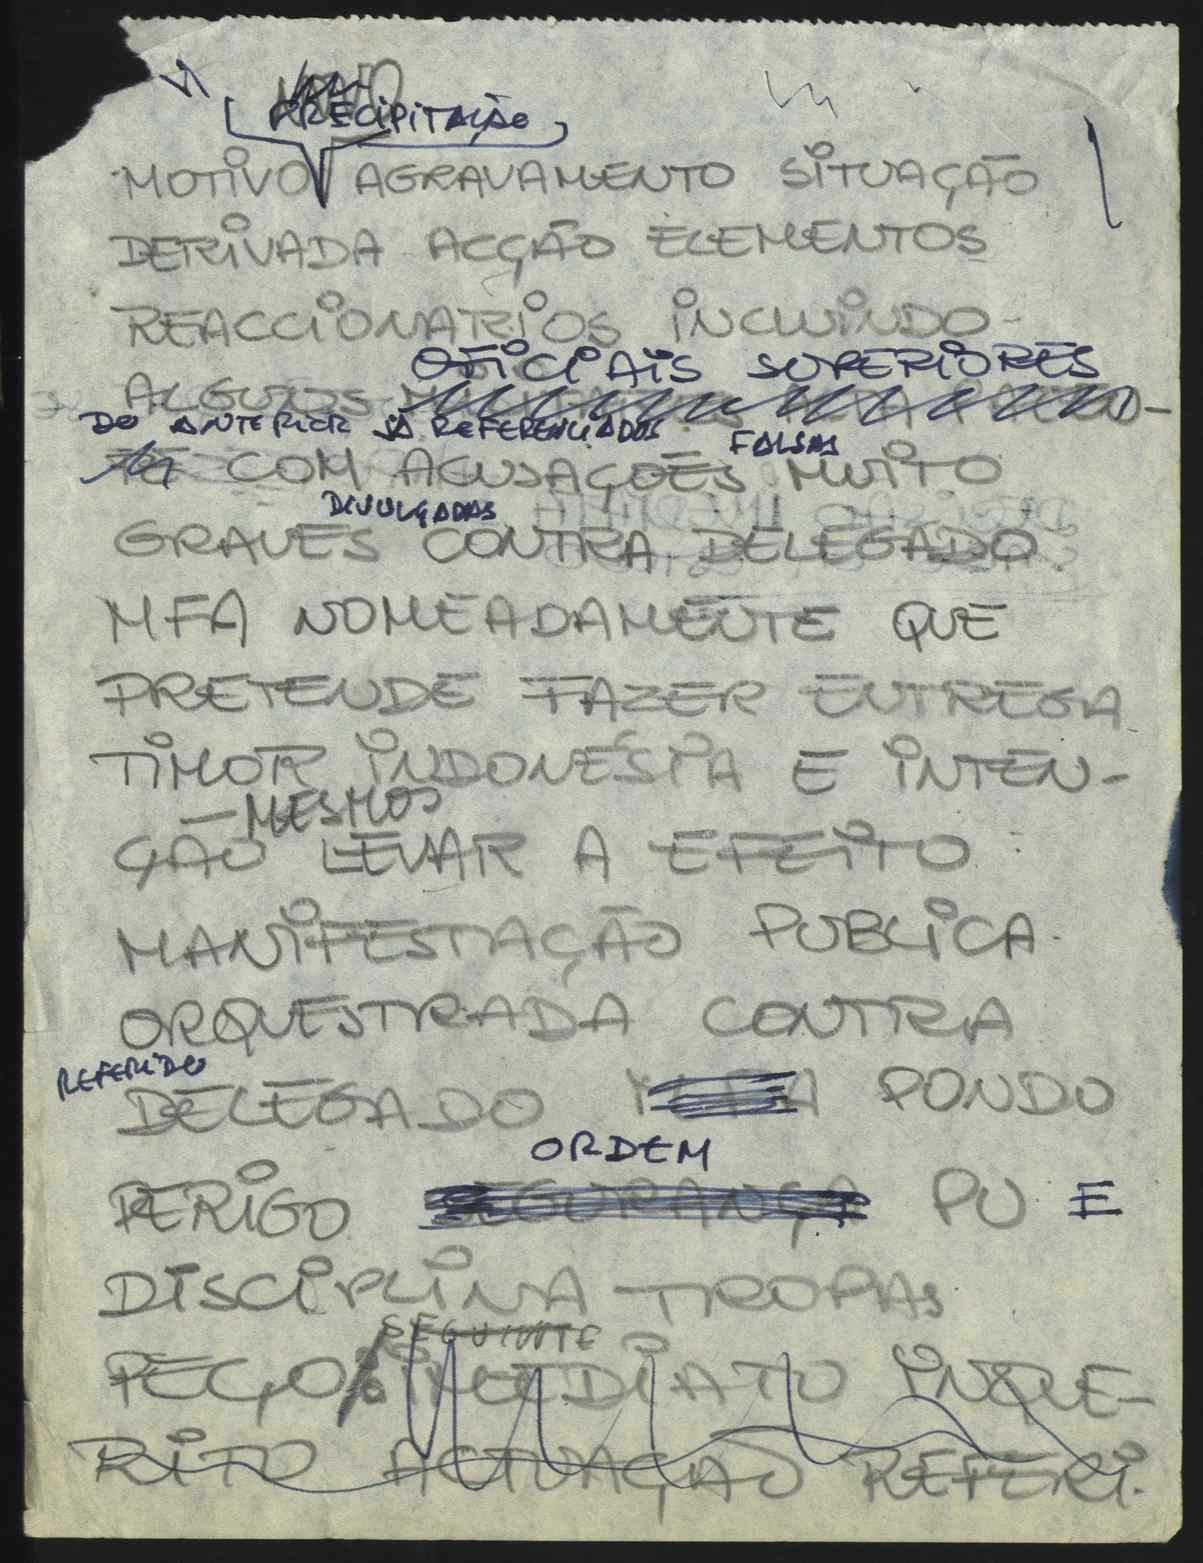 PRECIPITAÇÃO
MOTIVO AGRAVAMENTO SITUAÇÃO
DERIVADA ACÇÃO ELEMENTOS
REACCIONARIOS INCLUINDO-
OFICIAIS SUPERIORES
ALGUNS
DO ANTERIOR JÁ REFERENCIADOS FALSAS
COM ACUSAÇÕES MUITO
DIVULGADAS
GRAVES CONTRA DELEGADO
MFA NOMEADAMENTE QUE
PRETENDE FAZER ENTREGA
TIMOR INDONÉSIA E INTEN-
— MESMOS
ÇÃO LEVAR A EFEITO
MANIFESTAÇÃO PUBLICA
ORQUESTRADA CONTRA
REFERIDO
DELEGADO MFA PONDO
ORDEM
PERIGO SEGURANÇA PU E
DISCIPLINA TROPAS
SEGUINTE
PEÇO IMEDIATO INQUE-
RITO ACTUAÇÃO REFERI-